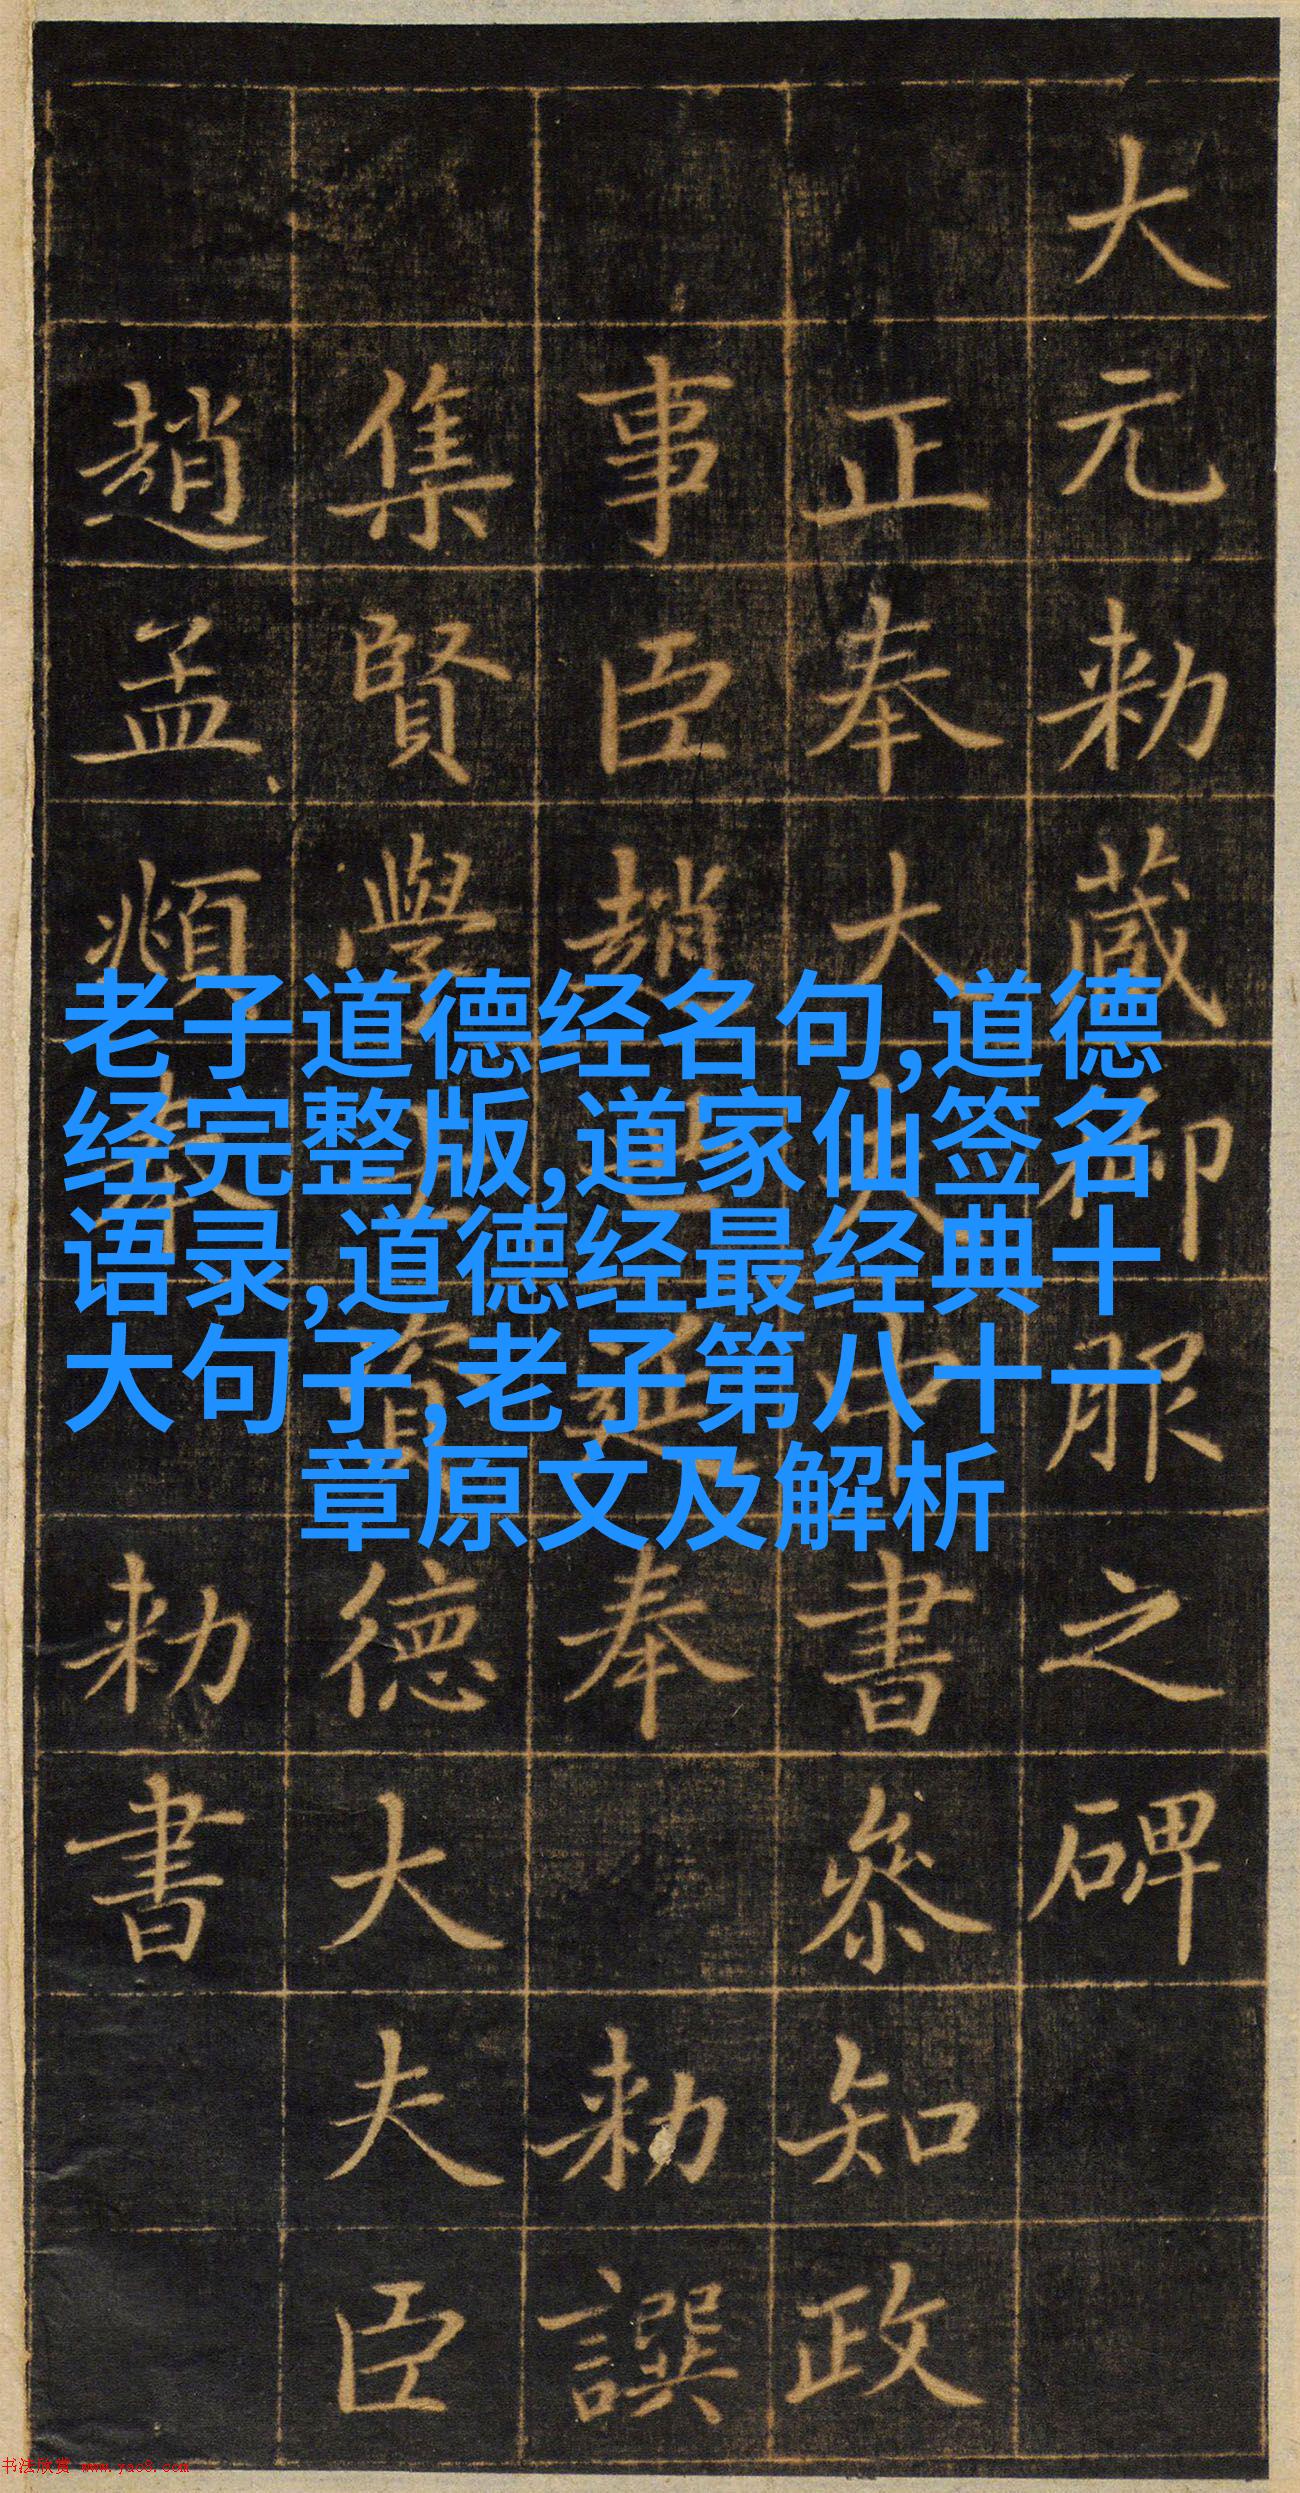 大元勑蔵御服之碑
正奉大夫中書叅知政
事臣趙世延奉勑譔
集賢學士資德大夫臣
趙孟頫奉勑書
老子道德经名句,道德
经完整版,道家仙签名
语录,道德经最经典十
大句子,老子第八十一
章原文及解析
书法欣赏 www.yac8.com